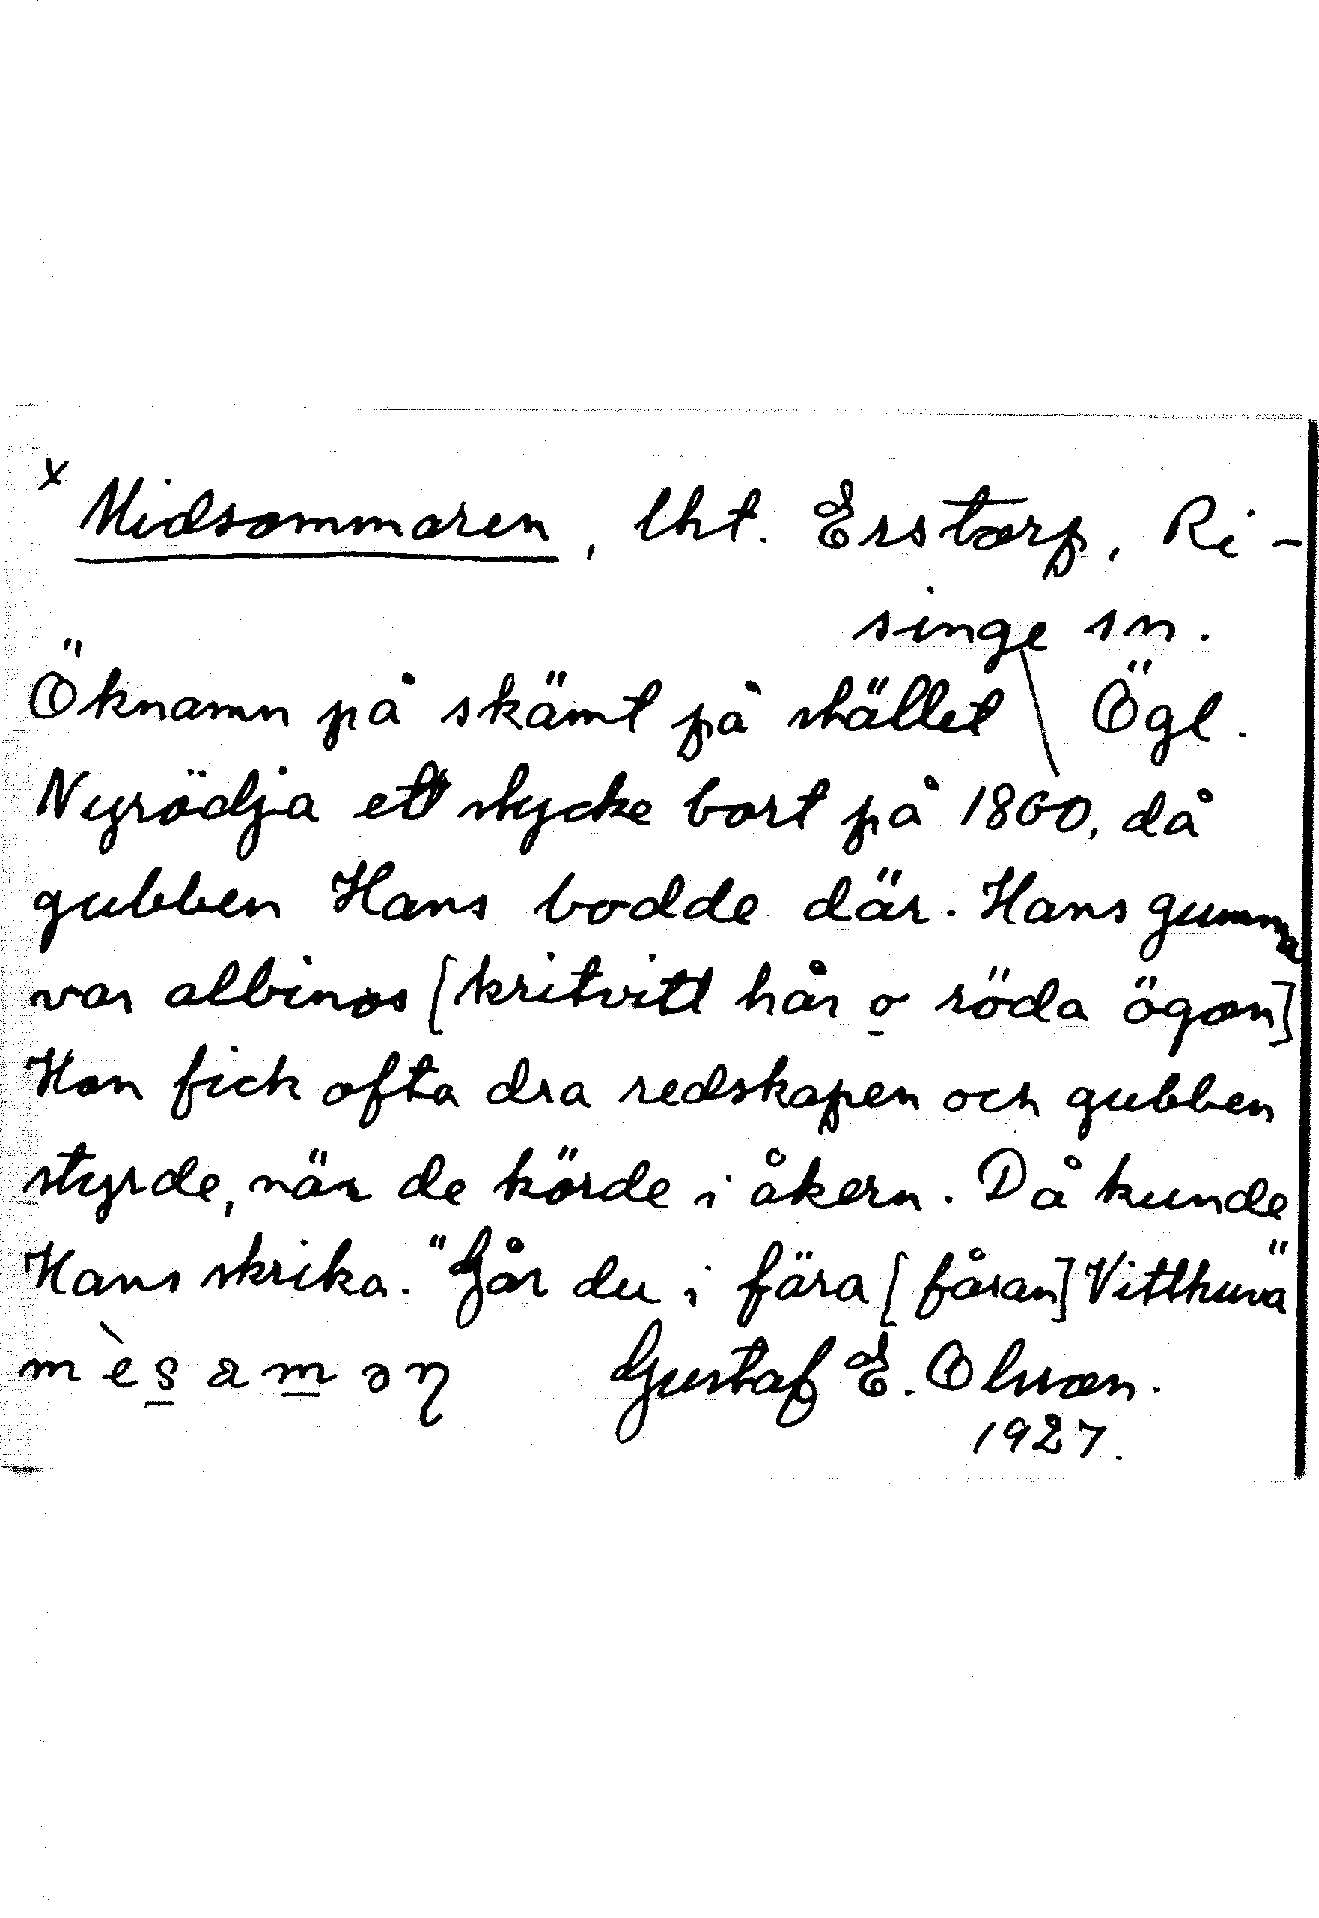 x
Midsommaren, lht. Erstorp, Ri-
singe sn.
Öknamn på skämt på stället Ögl.
Nyrödja ett stycke bort på 1860, då
gubben Hans bodde där. Hans gumma
var albinos [kritvitt hår o röda ögon]
Hon fick ofta dra redskapen och gubben
styrde, när de körde i åkern. Då kunde
Hans skrika. "Går du i fära [fåran] Vitthuva"
mèsaməŋ Gustaf E. Olsson.
1927.